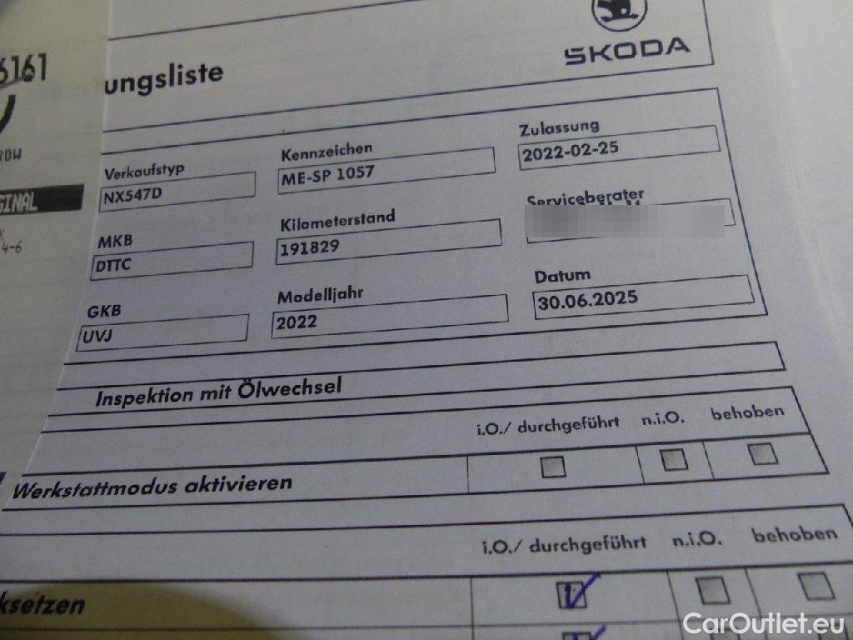 6161
SKODA
ungsliste
Verkaufstyp
NX547D
Kennzeichen
ME-SP 1057
Zulassung
2022-02-25
MKB
DTTC
Kilometerstand
191829
Serviceberater
GKB
UVJ
Modelljahr
2022
Datum
30.06.2025
Inspektion mit Ölwechsel
i.O./ durchgeführt n.i.O. behoben
Werkstattmodus aktivieren
i.O./ durchgeführt n.i.O. behoben
ksetzen
GINAL
4-6
CarOutlet.eu